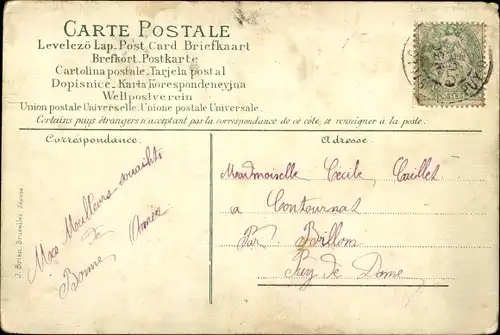 CARTE POSTALE
Levelező Lap. Post Card Briefkaart
Brefkort. Postkarte
Cartolina postale. Tarjeta postal
Dopisnice. Karta Korespondencyjna
Weltpostverein
Union postale Universelle. Unione postale Universale.
Certains pays étrangers n'acceptant pas la correspondance de ce côté, se renseigner à la poste.
Correspondance.
Adresse.
Mes Meilleurs souaits
de
Bonne Année
Mademoiselle Cécile Cuillet
a Contournat
Par Billom
Puy de Dome